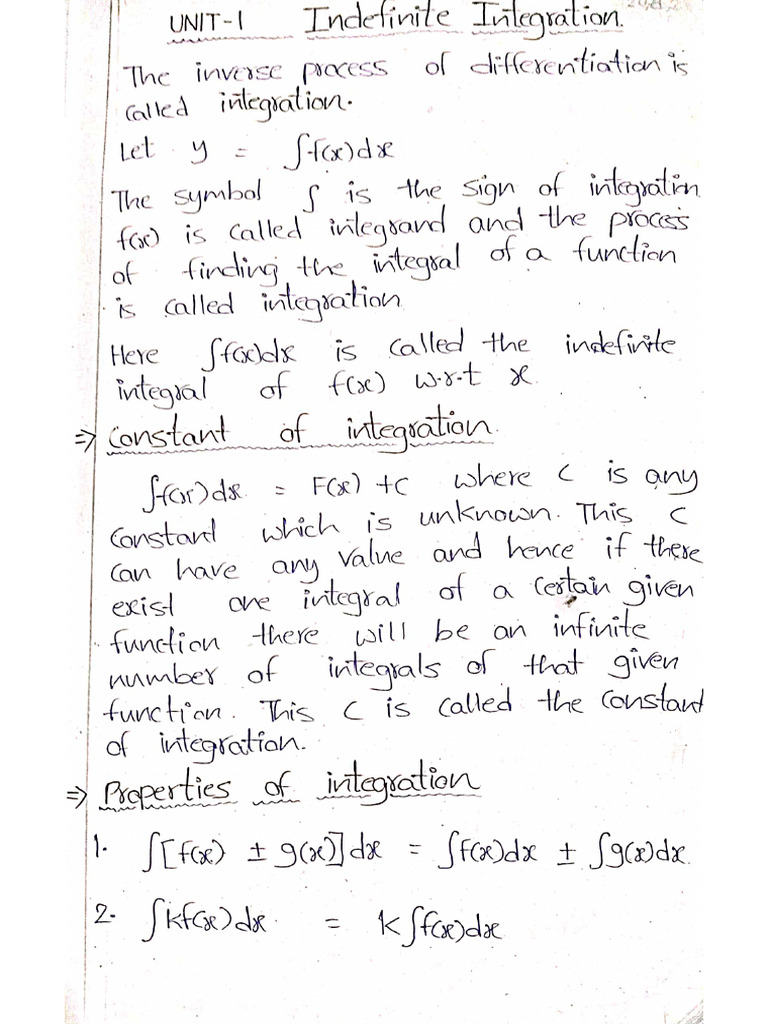 UNIT-1 Indefinite Integration.
The inverse process of differentiation is
called integration.
Let y = ∫f(x)dx
The symbol ∫ is the sign of integration
f(x) is called integrand and the process
of finding the integral of a function
is called integration
Here ∫f(x)dx is called the indefinite
integral of f(x) w.r.t x
⇒ Constant of integration.
∫f(x)dx = F(x) + C where C is any
constant which is unknown. This C
can have any value and hence if there
exist one integral of a certain given
function there will be an infinite
number of integrals of that given
function. This C is called the constant
of integration.
⇒ Properties of integration
1. ∫[f(x) ± g(x)]dx = ∫f(x)dx ± ∫g(x)dx.
2. ∫kf(x)dx = k∫f(x)dx